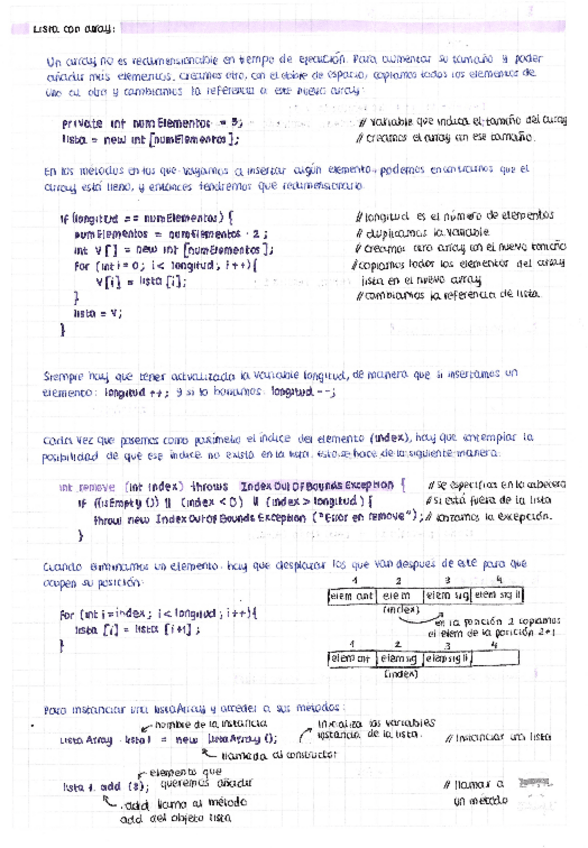 Lista con array:
Un array no es redimensionable en tiempo de ejecución. Para aumentar su tamaño y poder
añadir más elementos, creamos otro, con el doble de espacio, copiamos todos los elementos de
uno al otro y cambiamos la referencia a este nuevo array:
private int numElementos = 3; // variable que indica el tamaño del array
lista = new int [numElementos]; // creamos el array con ese tamaño.
En los métodos en los que vayamos a insertar algún elemento, podemos encontrarnos que el
array está lleno, y entonces tendremos que redimensionarlo
if (longitud == numElementos) { // longitud es el número de elementos
numElementos = numElementos · 2 ; // duplicamos la variable
int v [] = new int [numElementos]; // creamos otro array con el nuevo tamaño
for (int i = 0; i < longitud; i++){ // copiamos todos los elementos del array
v[i] = lista [i]; lista en el nuevo array
} // cambiamos la referencia de lista.
lista = v;
}
Siempre hay que tener actualizada la variable longitud, de manera que si insertamos un
elemento: longitud ++; y si lo borramos: longitud --;
Cada vez que pasemos como parámetro el índice del elemento (index), hay que contemplar la
posibilidad de que ese índice no exista en la lista. Esto se hace de la siguiente manera:
int remove (int index) throws IndexOutOfBoundsException { // se especifica en la cabecera
if ((isEmpty ()) || (index < 0) || (index > longitud) { // si está fuera de la lista
throw new IndexOutOfBoundsException ("Error en remove"); // lanzamos la excepción.
}
Cuando eliminamos un elemento, hay que desplazar los que van después de este para que
ocupen su posición:
1 2 3 4
elem ant elem elem sig elem sig ii
(index)
for (int i = index; i < longitud; i++){
lista [i] = lista [i+1] ;
}
en la posición 2 copiamos
el elem de la posición 2+1
1 2 3 4
elem ant elem sig elem sig ii
(index)
Para instanciar una listaArray y acceder a sus métodos:
nombre de la instancia
Inicializa las variables
instancia de la lista.
ListaArray lista1 = new ListaArray (); // Instanciar una lista
llamada al constructor
elemento que
queremos añadir
lista 1. add (3); // llamar a
un método
.add llama al método
add del objeto lista